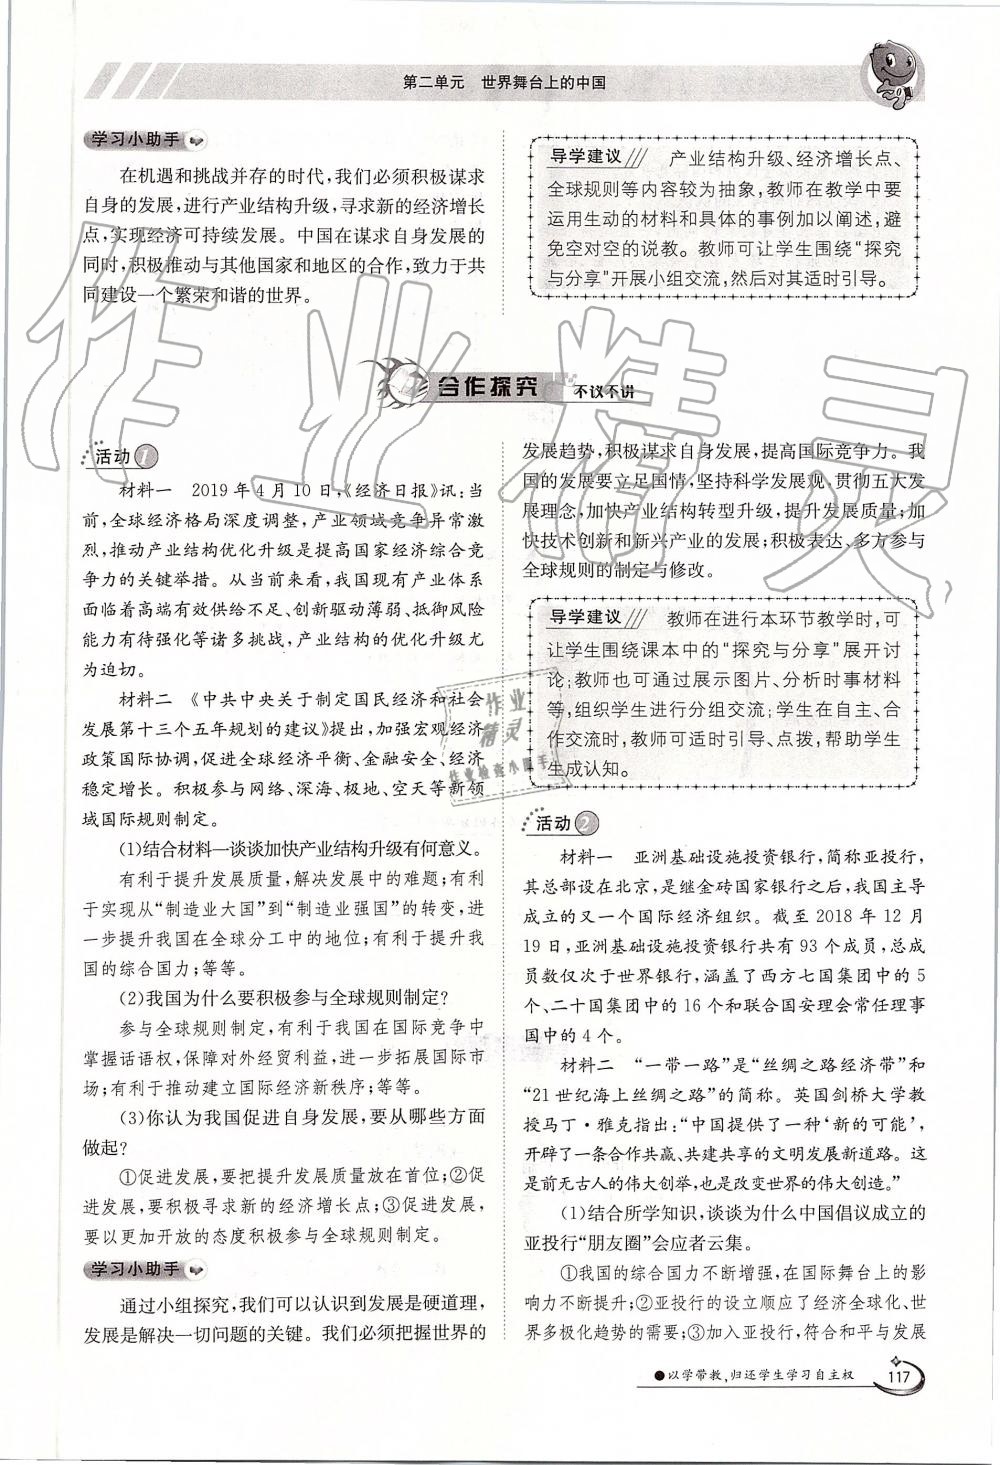 第二单元　世界舞台上的中国
学习小助手
在机遇和挑战并存的时代,我们必须积极谋求
自身的发展,进行产业结构升级,寻求新的经济增长
点,实现经济可持续发展。中国在谋求自身发展的
同时,积极推动与其他国家和地区的合作,致力于共
同建设一个繁荣和谐的世界。
导学建议/// 产业结构升级、经济增长点、
全球规则等内容较为抽象,教师在教学中要
运用生动的材料和具体的事例加以阐述,避
免空对空的说教。教师可让学生围绕“探究
与分享”开展小组交流,然后对其适时引导。
合作探究 不议不讲
活动1
材料一　2019年4月10日,《经济日报》讯:当
前,全球经济格局深度调整,产业领域竞争异常激
烈,推动产业结构优化升级是提高国家经济综合竞
争力的关键举措。从当前来看,我国现有产业体系
面临着高端有效供给不足、创新驱动薄弱、抵御风险
能力有待强化等诸多挑战,产业结构的优化升级尤
为迫切。
材料二　《中共中央关于制定国民经济和社会
发展第十三个五年规划的建议》提出,加强宏观经济
政策国际协调,促进全球经济平衡、金融安全、经济
稳定增长。积极参与网络、深海、极地、空天等新领
域国际规则制定。
(1)结合材料一谈谈加快产业结构升级有何意义。
有利于提升发展质量,解决发展中的难题;有利
于实现从“制造业大国”到“制造业强国”的转变,进
一步提升我国在全球分工中的地位;有利于提升我
国的综合国力;等等。
(2)我国为什么要积极参与全球规则制定?
参与全球规则制定,有利于我国在国际竞争中
掌握话语权,保障对外经贸利益,进一步拓展国际市
场;有利于推动建立国际经济新秩序;等等。
(3)你认为我国促进自身发展,要从哪些方面
做起?
①促进发展,要把提升发展质量放在首位;②促
进发展,要积极寻求新的经济增长点;③促进发展,
要以更加开放的态度积极参与全球规则制定。
学习小助手
通过小组探究,我们可以认识到发展是硬道理,
发展是解决一切问题的关键。我们必须把握世界的
发展趋势,积极谋求自身发展,提高国际竞争力。我
国的发展要立足国情,坚持科学发展观,贯彻五大发
展理念,加快产业结构转型升级,提升发展质量;加
快技术创新和新兴产业的发展;积极表达、多方参与
全球规则的制定与修改。
导学建议/// 教师在进行本环节教学时,可
让学生围绕课本中的“探究与分享”展开讨
论;教师也可通过展示图片、分析时事材料
等,组织学生进行分组交流;学生在自主、合
作交流时,教师可适时引导、点拨,帮助学生
生成认知。
活动2
材料一　亚洲基础设施投资银行,简称亚投行,
其总部设在北京,是继金砖国家银行之后,我国主导
成立的又一个国际经济组织。截至2018年12月
19日,亚洲基础设施投资银行共有93个成员,总成
员数仅次于世界银行,涵盖了西方七国集团中的5
个、二十国集团中的16个和联合国安理会常任理事
国中的4个。
材料二　“一带一路”是“丝绸之路经济带”和
“21世纪海上丝绸之路”的简称。英国剑桥大学教
授马丁·雅克指出:“中国提供了一种‘新的可能’,
开辟了一条合作共赢、共建共享的文明发展新道路。这
是前无古人的伟大创举,也是改变世界的伟大创造。”
(1)结合所学知识,谈谈为什么中国倡议成立的
亚投行“朋友圈”会应者云集。
①我国的综合国力不断增强,在国际舞台上的影
响力不断提升;②亚投行的设立顺应了经济全球化、世
界多极化趋势的需要;③加入亚投行,符合和平与发展
●以学带教,归还学生学习自主权
117
作业精灵
作业
精灵
作业检查小助手